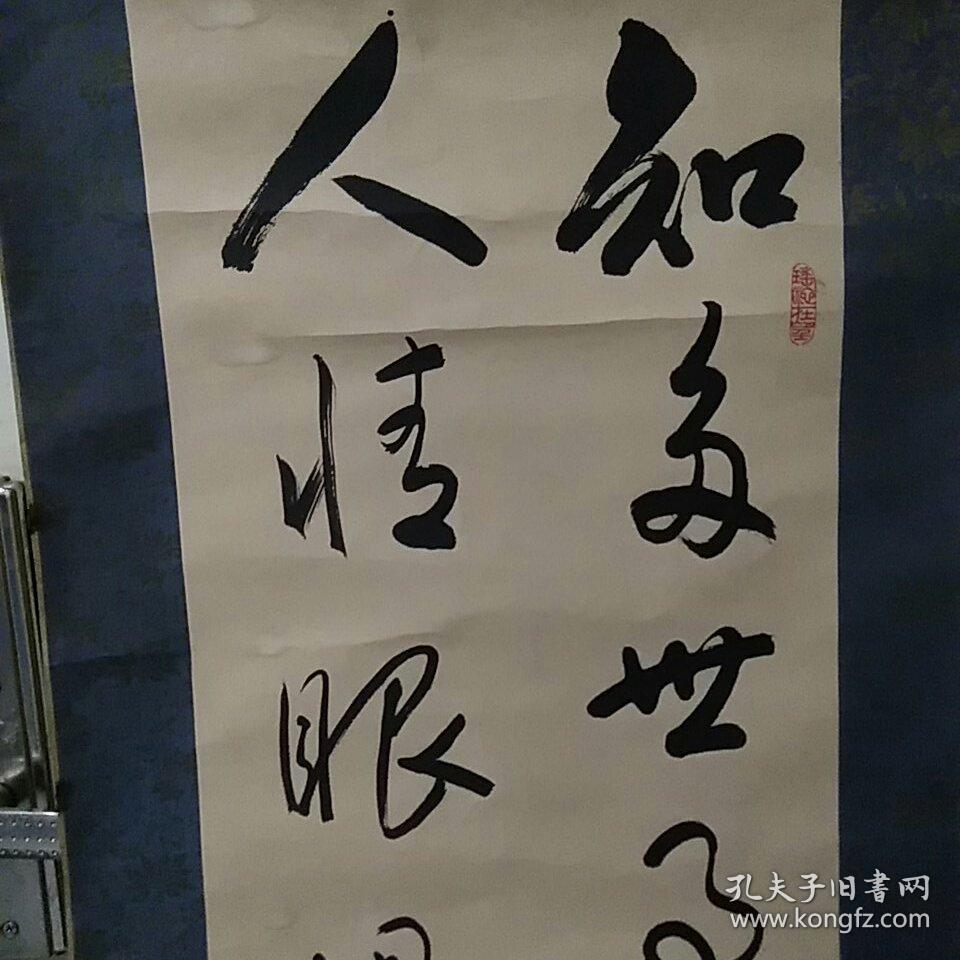 知多世事
人情眼
孔夫子旧書网
www.kongfz.com